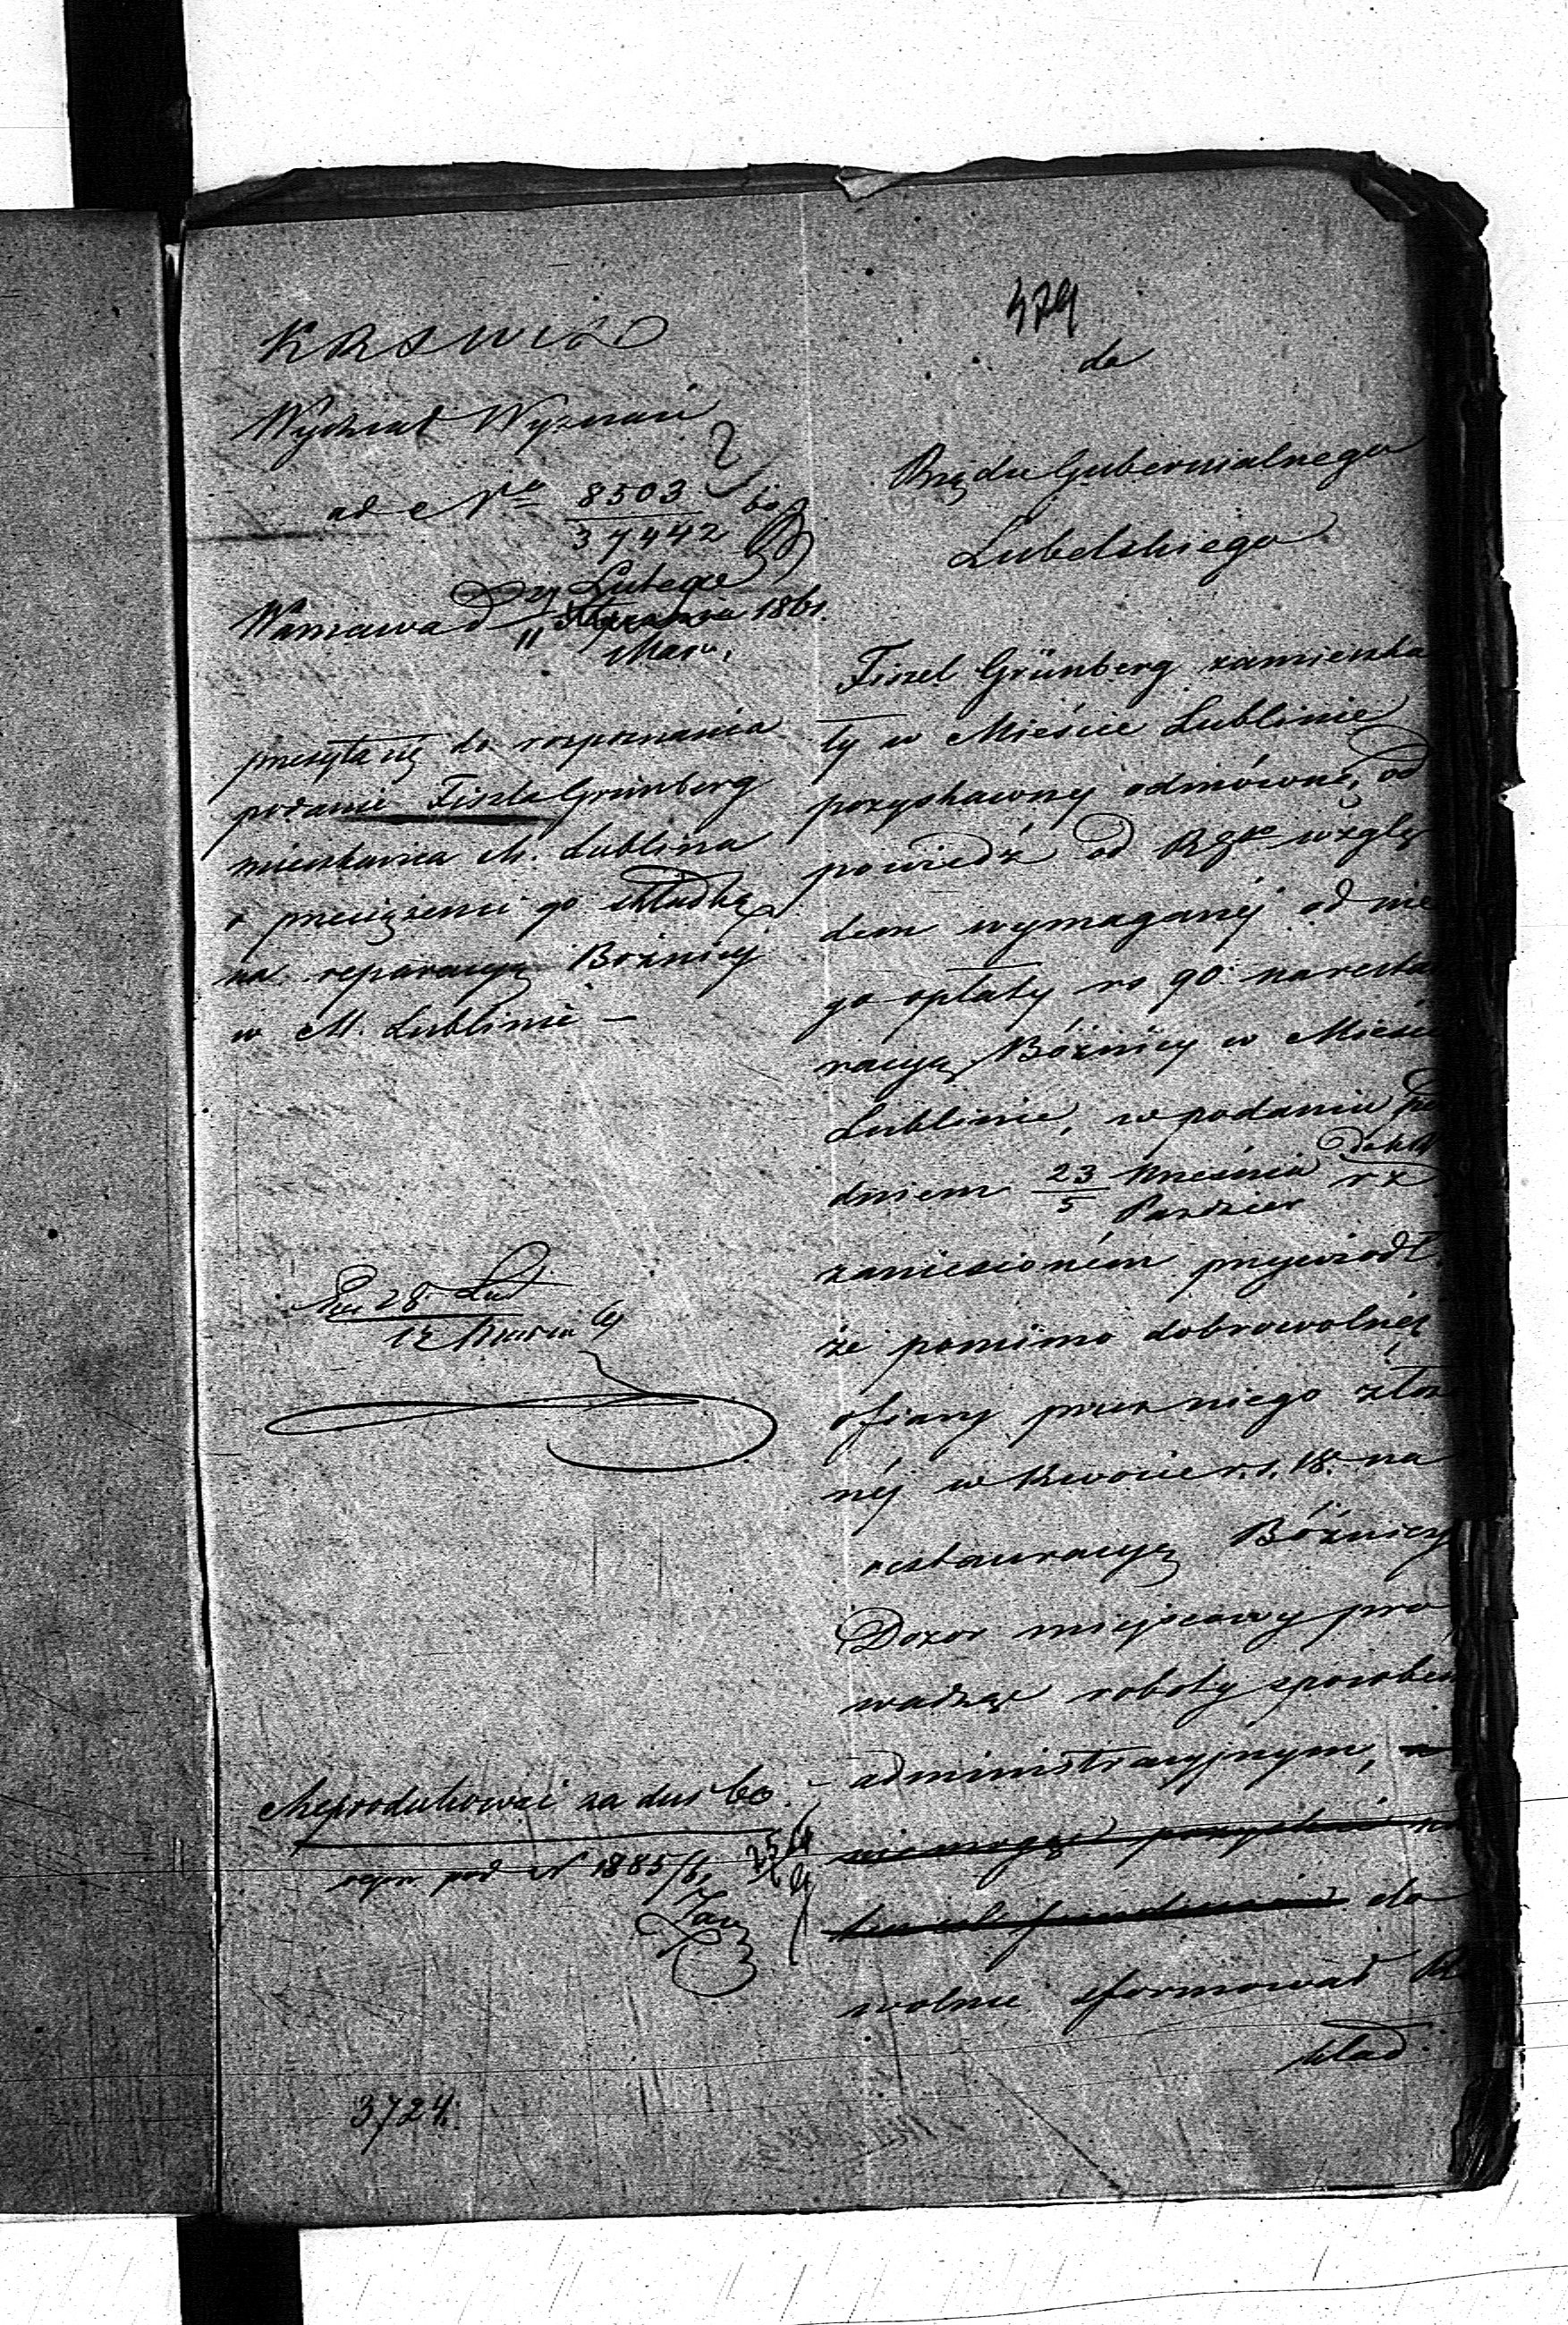 479
K R S W i D
Wydział Wyznań
ad No 8503
37442
Warszawa d 27 Lutego
11 Marca 1861.
przesyła się do rozpoznania
podanie Fiszla Grünberg
mieszkańca M. Lublina
o przeciążeniu go składką
na reparacyą Bóżnicy
w M. Lublinie –
28 Lut
12 Marca 61
Reprodukować za dni 60.
repr. pod N 1885/61
3724.
do
Rządu Gubernialnego
Lubelskiego
Fiszel Grünberg zamieszka
ły w Mieście Lublinie
pozyskawszy odmówną od
powiedź od RGgo wzglę
dem wymaganéj od nie
go opłaty rs 90 na restau
racyą Bóżnicy w Mieście
Lublinie, w podaniu
dniem 23 Września
5 Paździer
zaniesioném przywiódł
że pomimo dobrowolnéj
ofiary przez niego złożo
néj w kwocie r.s. 18. na
restauracyą Bóżnicy
Dozór miejscowy pro
wadząc roboty sposobem
administracyjnym,
niemogąc pozyskać
do
wolnie sformował
kład